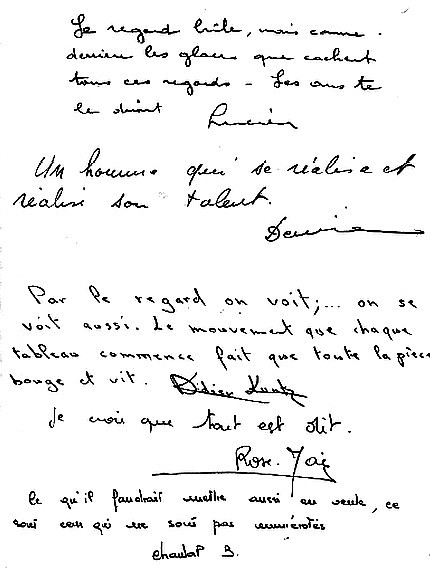 Le regard brûle, mais comme
derrière les glaces que cachent
tous ces regards - Les ans te
le diront Lucien
Un homme qui se réalise et
réalise son talent.
Par le regard on voit;... on se
voit aussi. Le mouvement que chaque
tableau commence fait que toute la pièce
bouge et vit. Didier Kuntz
Je crois que tout est dit.
Rose-
ce qu'il faudrait mettre aussi en vente, ce
sont ceux qui ne sont pas numérotés
Chantal B.